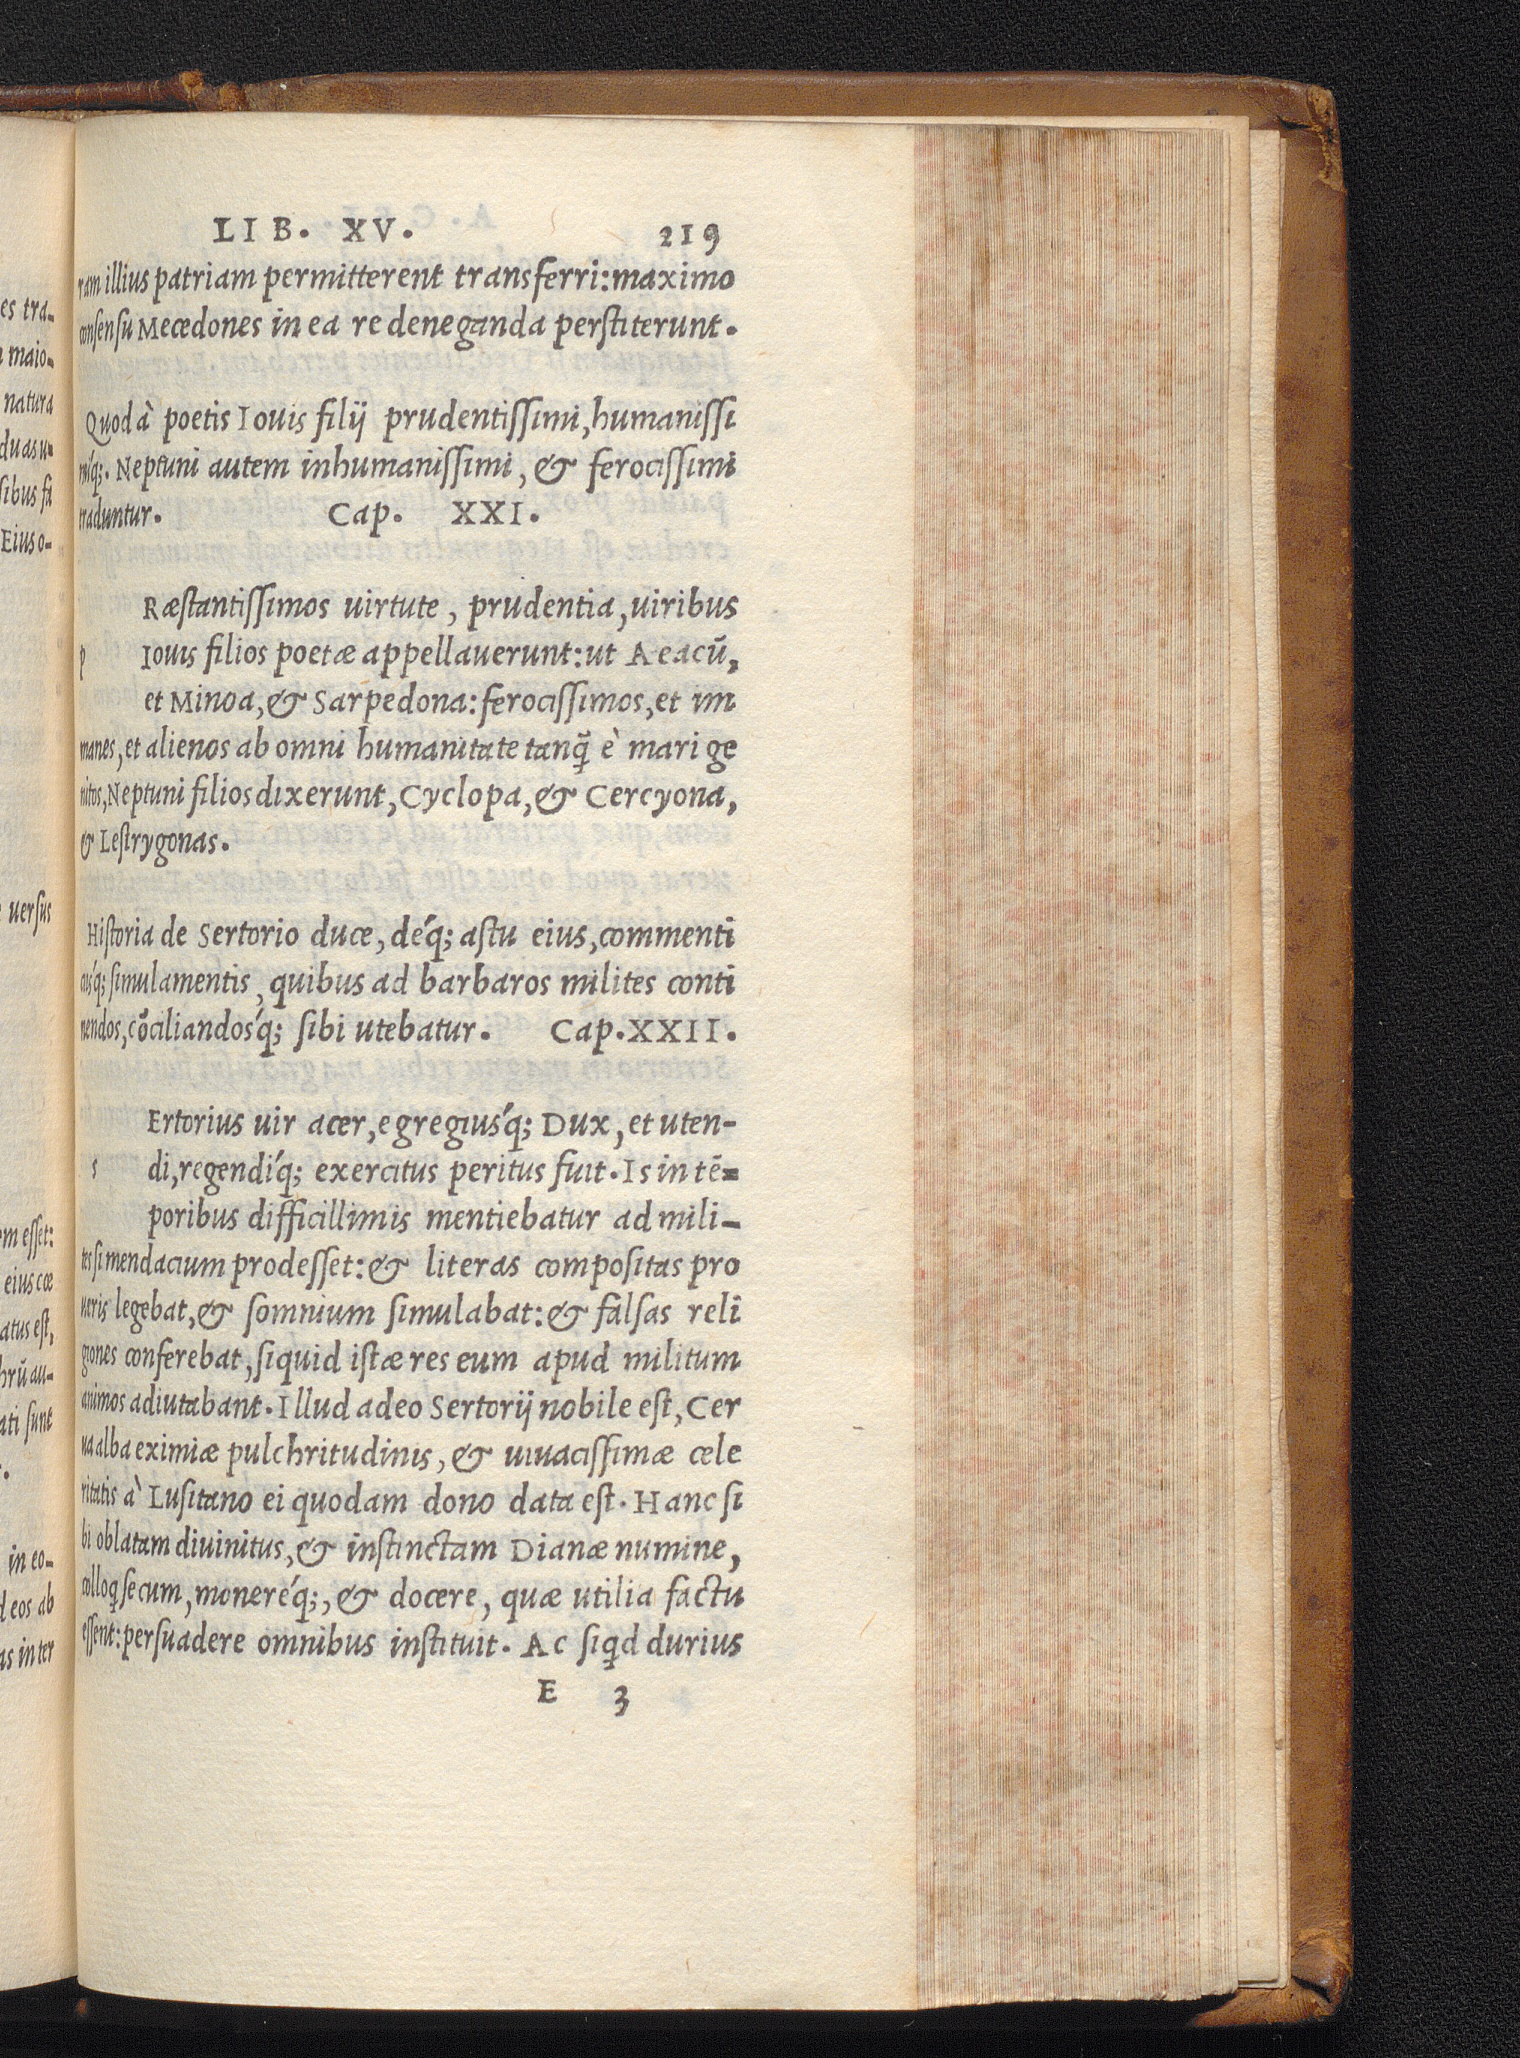 LIB. XV. 219
ram illius patriam permitterent transferri: maximo
consensu Mecedones in ea re deneganda perstiterunt.
Quod à poetis Iouis filij prudentissimi, humanissi
miq́;. Neptuni autem inhumanissimi, & ferocissimi
traduntur. Cap. XXI.
Ræstantissimos uirtute, prudentia, uiribus
p Iouis filios poetæ appellauerunt: ut Aeacū,
et Minoa, & Sarpedona: ferocissimos, et im
manes, et alienos ab omni humanitate tanq̃ è mari ge
nitos, Neptuni filios dixerunt, Cyclopa, & Cercyona,
& Lestrygonas.
Historia de Sertorio duce, déq; astu eius, commenti
ásq; simulamentis, quibus ad barbaros milites conti
nendos, cōciliandosq́; sibi utebatur. Cap. XXII.
Ertorius uir acer, egregiusq́; Dux, et uten-
s di, regendiq́; exercitus peritus fuit. Is in tē-
poribus difficillimis mentiebatur ad mili-
tes si mendacium prodesset: & literas compositas pro
ueris legebat, & somnium simulabat: & falsas reli
giones conferebat, siquid istæ res eum apud militum
animos adiutabant. Illud adeo Sertorij nobile est, Cer
ua alba eximiæ pulchritudinis, & uiuacissimæ cele
ritatis à Lusitano ei quodam dono data est. Hanc si
bi oblatam diuinitus, & instinctam Dianæ numine,
colloq secum, moneréq;, & docere, quæ utilia factu
essent: persuadere omnibus instituit. Ac siqd durius
E 3
es tra-
maio-
natura
duas u-
sibus fi
Eius o-
uersus
em esset:
eius cœ
atus est,
hrū au-
ati sunt
in eo-
d eos ab
as inter